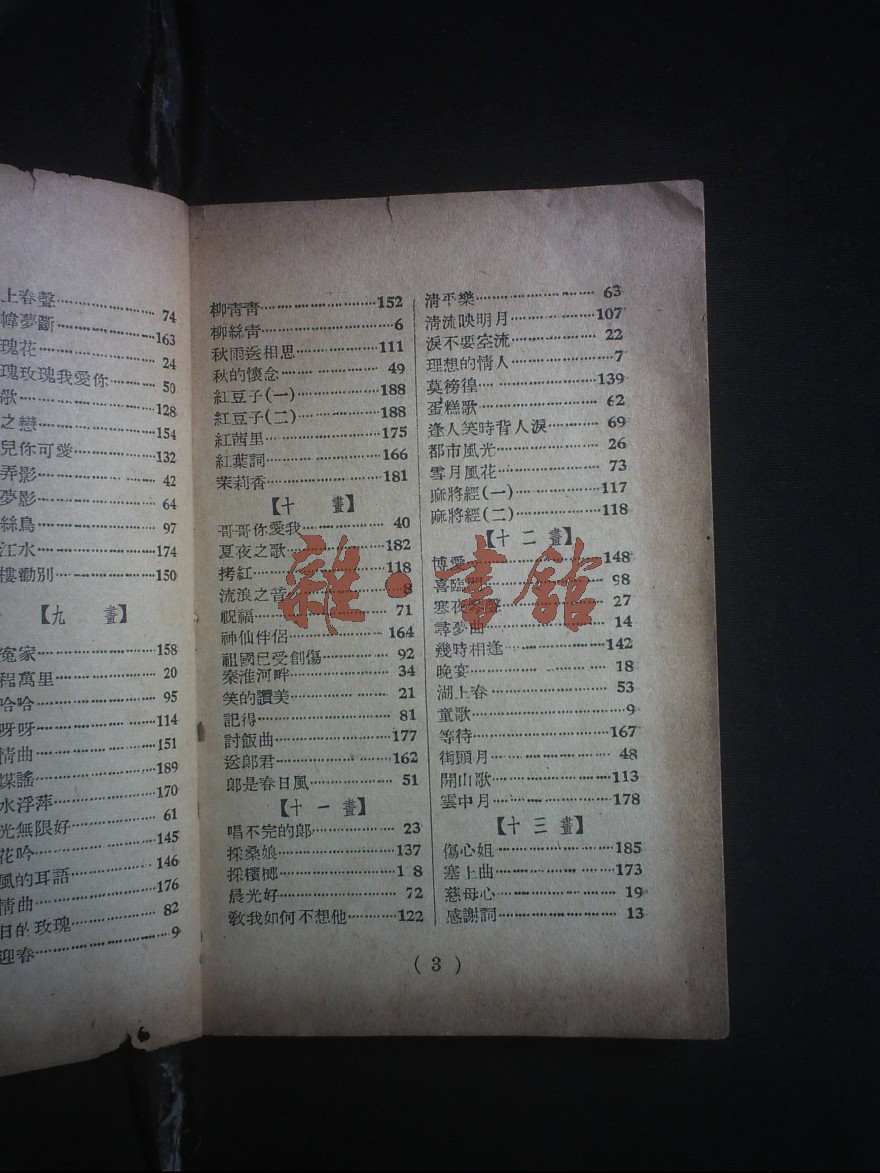 上春聲 74
幃夢斷 163
瑰花 24
瑰玫瑰我愛你 50
歌 128
之戀 154
兒你可愛 132
弄影 42
夢影 64
絲鳥 97
江水 174
樓勸別 150
【九 畫】
冤家 158
程萬里 20
哈哈 95
呀呀 114
情曲 151
謀謠 189
水浮萍 170
光無限好 61
花吟 145
風的耳語 146
情曲 176
日的玫瑰 82
迎春 9
柳青青 152
柳絲青 6
秋雨送相思 111
秋的懷念 49
紅豆子(一) 188
紅豆子(二) 188
紅茜里 175
紅葉詞 166
茉莉香 181
【十 畫】
哥哥你愛我 40
夏夜之歌 182
拷紅 118
流浪之音 8
祝福 71
神仙伴侶 164
祖國已受創傷 92
秦淮河畔 34
笑的讚美 21
記得 81
討飯曲 177
送郞君 162
郞是春日風 51
【十一畫】
唱不完的郞 23
採桑娘 137
採檳榔 1 8
晨光好 72
敎我如何不想他 122
清平樂 63
清流映明月 107
淚不要空流 22
理想的情人 7
莫徬徨 139
蛋糕歌 62
逢人笑時背人淚 69
都市風光 26
雪月風花 73
麻將經(一) 117
麻將經(二) 118
【十二畫】
博愛 148
喜臨門 98
寒夜 聲 27
尋夢曲 14
幾時相逢 142
晚宴 18
湖上春 53
童歌 9
等待 167
街頭月 48
開山歌 113
雲中月 178
【十三畫】
傷心姐 185
塞上曲 173
慈母心 19
感謝詞 13
(3)
雜·書館